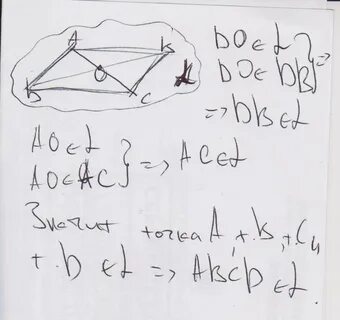 A B
O
D C α
DO ∈ α } =>
DO ∈ DB
=> DB ∈ α
AO ∈ α }
AO ∈ AC } => AC ∈ α
Значит точка A, т. B, т. C и
т. D ∈ α => ABCD ∈ α.